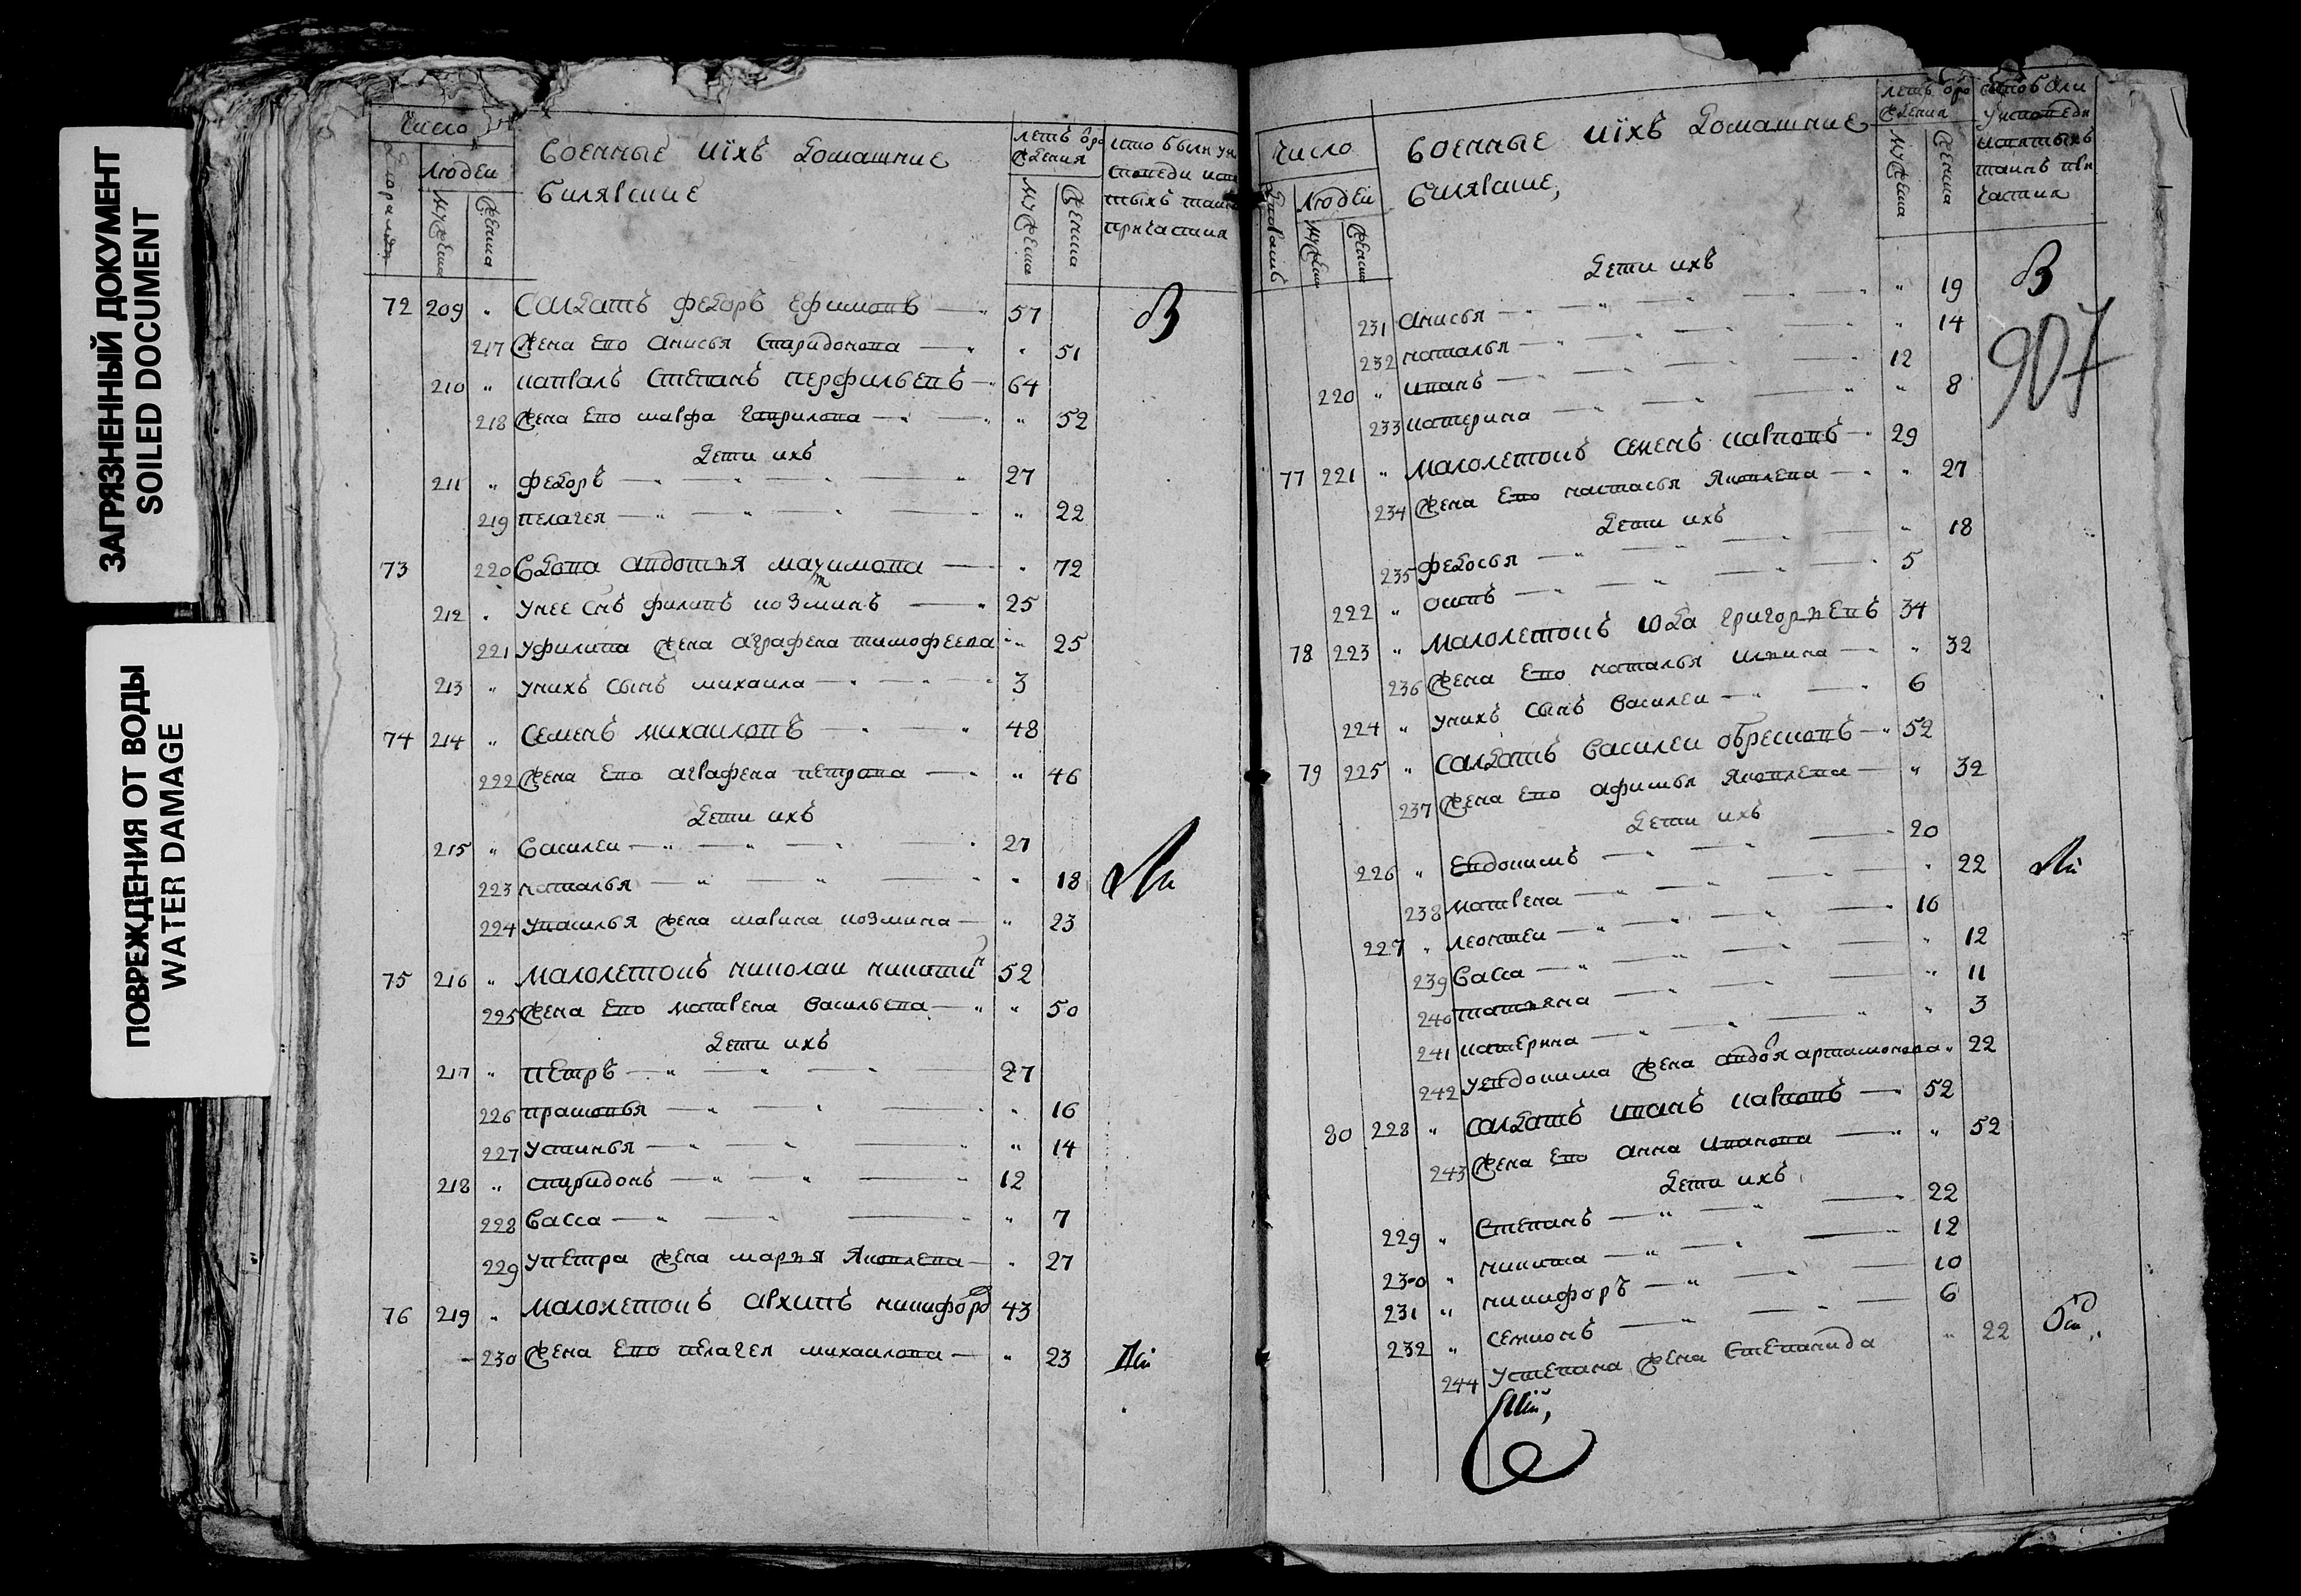 ЗАГРЯЗНЕННЫЙ ДОКУМЕНТ
SOILED DOCUMENT
ПОВРЕЖДЕНИЯ ОТ ВОДЫ
WATER DAMAGE
Число
Людеи
мужеска
женска
военные иїхъ домашние
летъ ѿро
ждения
мужеска
женска
кто были уи
споведи исвя
тыхъ таин
причастия
72 209 " Салдатъ федоръ ефимовъ 57
217 Жена Ево анисья Спиридонова " 51
210 " капралъ Степанъ перфильевъ 64
218 Жена Ево марфа гаврилова " 52
Дети ихъ
211 " федоръ 27
219 пелагея " 22
73 220 Вдова авдотия маѯимова " 72
212 " унее Снъ филипъ козминъ 25
221 уфилипа Жена аграфена тимофеева " 25
213 " унихъ сынъ михаила 3
74 214 " Семенъ михаиловъ 48
222 Жена Ево аграфена петрова " 46
Дети ихъ
215 " Василеи 27
223 наталья " 18
224 увасилья Жена марина козмина " 23
75 216 " малолетокъ николаи никитин 52
225 Жена Ево матрена васильева " 50
Дети ихъ
217 " петръ 27
226 прасковья " 16
227 устинья " 14
218 " спиридонъ 12
228 Васса " 7
229 упетра Жена мария Яковлева " 27
76 219 " малолетокъ архипъ никифоров 43
230 Жена Ево пелагея михаилова " 23
Число
Людеи
мужеска
женска
военные иїхъ домашние
летъ ѿро
ждения
мужеска
женска
кто были
уисповеди
исвятыхъ
таинъ при
частия
907
Дети ихъ
231 анисья " 19
232 наталья " 14
220 " иванъ 12
233 катерина " 8
77 221 " малолетокъ семенъ карповъ 29
234 Жена Ево настасья Яковлева " 27
Дети ихъ
235 федосья " 18
222 " осипъ 5
78 223 " малолетокъ юда григориевъ 34
236 Жена Ево наталья илиина " 32
224 " унихъ сынъ василеи 6
79 225 " салдатъ василеи обресковъ 52
237 Жена Ево афимья Яковлева " 32
Дети ихъ
226 " Евдокимъ 20
238 матрена " 22
227 " леонтеи 16
239 Васса " 12
240 татияна " 11
241 катерина " 3
242 уевдокима Жена авдоя артамонова " 22
80 228 " салдатъ иванъ карповъ 52
243 Жена Ево анна Иванова " 52
Дети ихъ
229 " Степанъ 22
230 " никита 12
231 " никифоръ 10
232 " семионъ 6
244 устепана Жена Степанида " 22